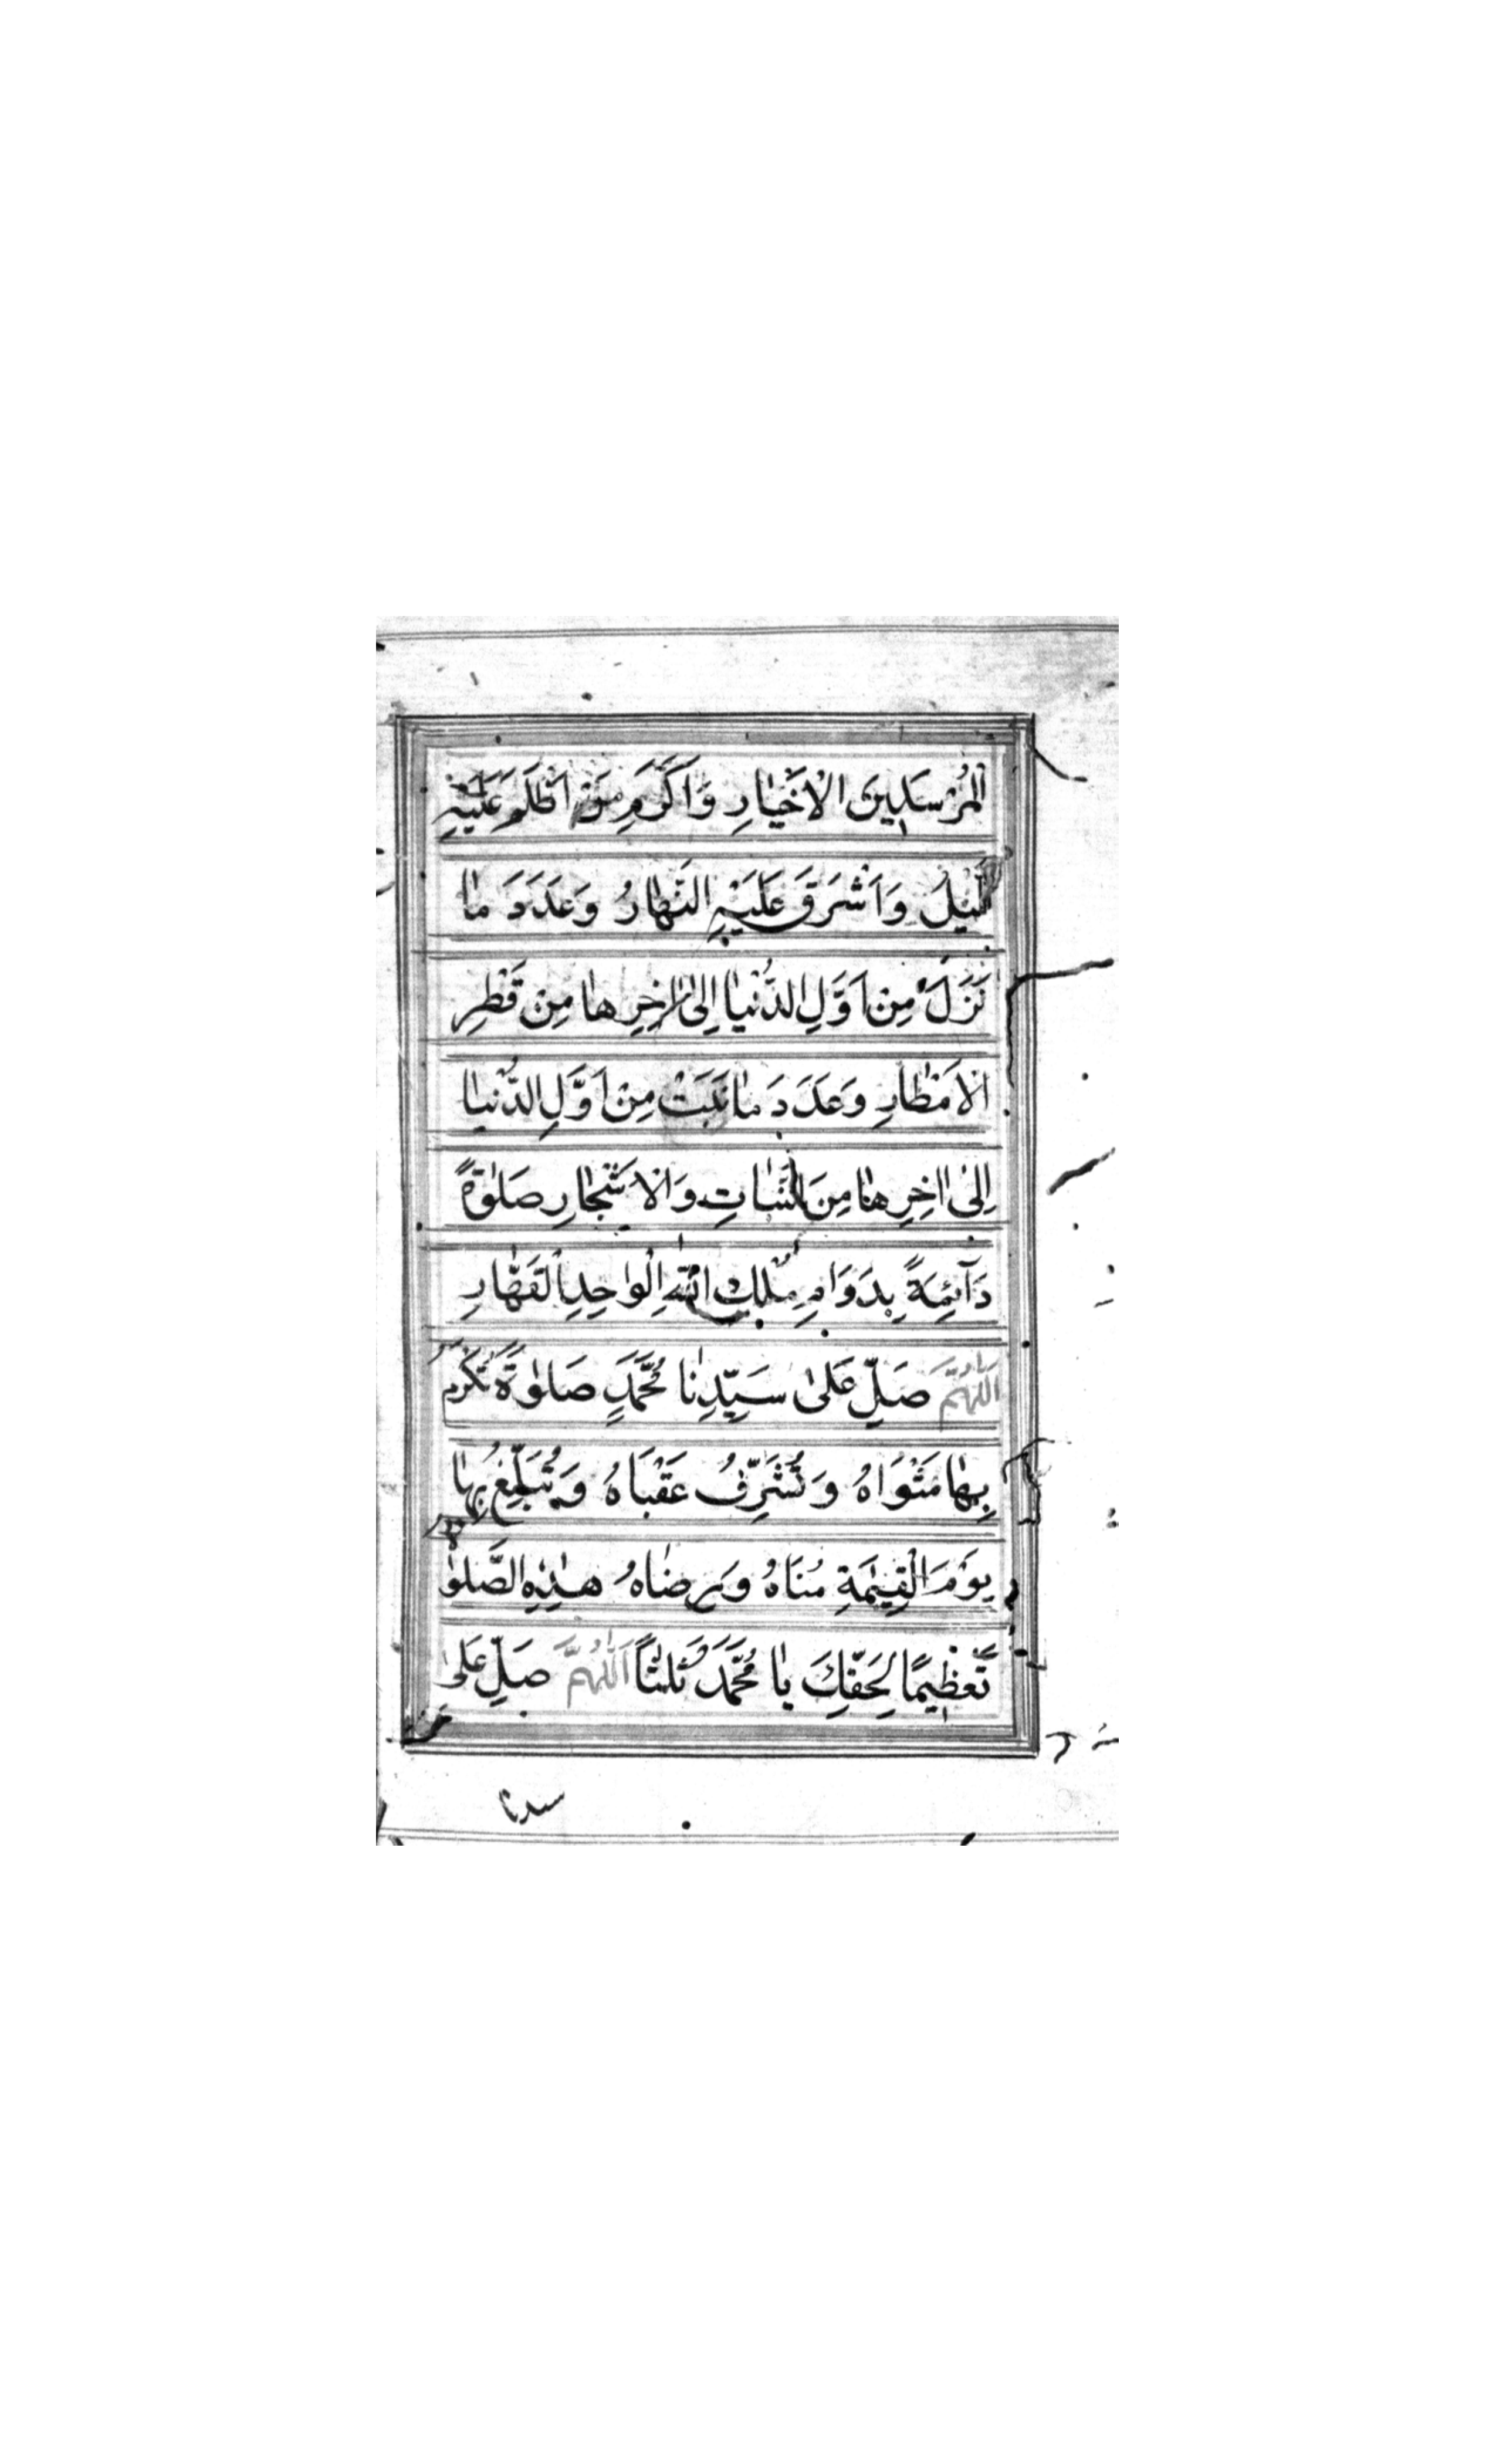 الْمُرْسَلِينَ الْاَخْيَارِ وَاَكْرَمِ مَنْ اَظْلَمَ عَلَيْهِ
الَّيْلُ وَاَشْرَقَ عَلَيْهِ النَّهَارُ وَعَدَدَ مَا
نَزَلَ مِنْ اَوَّلِ الدُّنْيَا اِلٰى اٰخِرِهَا مِنْ قَطْرِ
الْاَمْطَارِ وَعَدَدَ مَا نَبَتَ مِنْ اَوَّلِ الدُّنْيَا
اِلٰى اٰخِرِهَا مِنَ النَّبَاتِ وَالْاَشْجَارِ صَلٰوةً
دَآئِمَةً بِدَوَامِ مُلْكِ اللّٰهِ الْوَاحِدِ الْقَهَّارِ
اَللّٰهُمَّ صَلِّ عَلٰى سَيِّدِنَا مُحَمَّدٍ صَلٰوةً تُكْرِمُ
بِهَا مَثْوَاهُ وَتُشَرِّفُ عُقْبَاهُ وَتُبَلِّغُ بِهَا
يَوْمَ الْقِيٰمَةِ مُنَاهُ وَرِضَاهُ هٰذِهِ الصَّلٰوةُ
تَعْظِيمًا لِحَقِّكَ يَا مُحَمَّدُ ثَلٰثًا اَللّٰهُمَّ صَلِّ عَلٰى
سيدنا